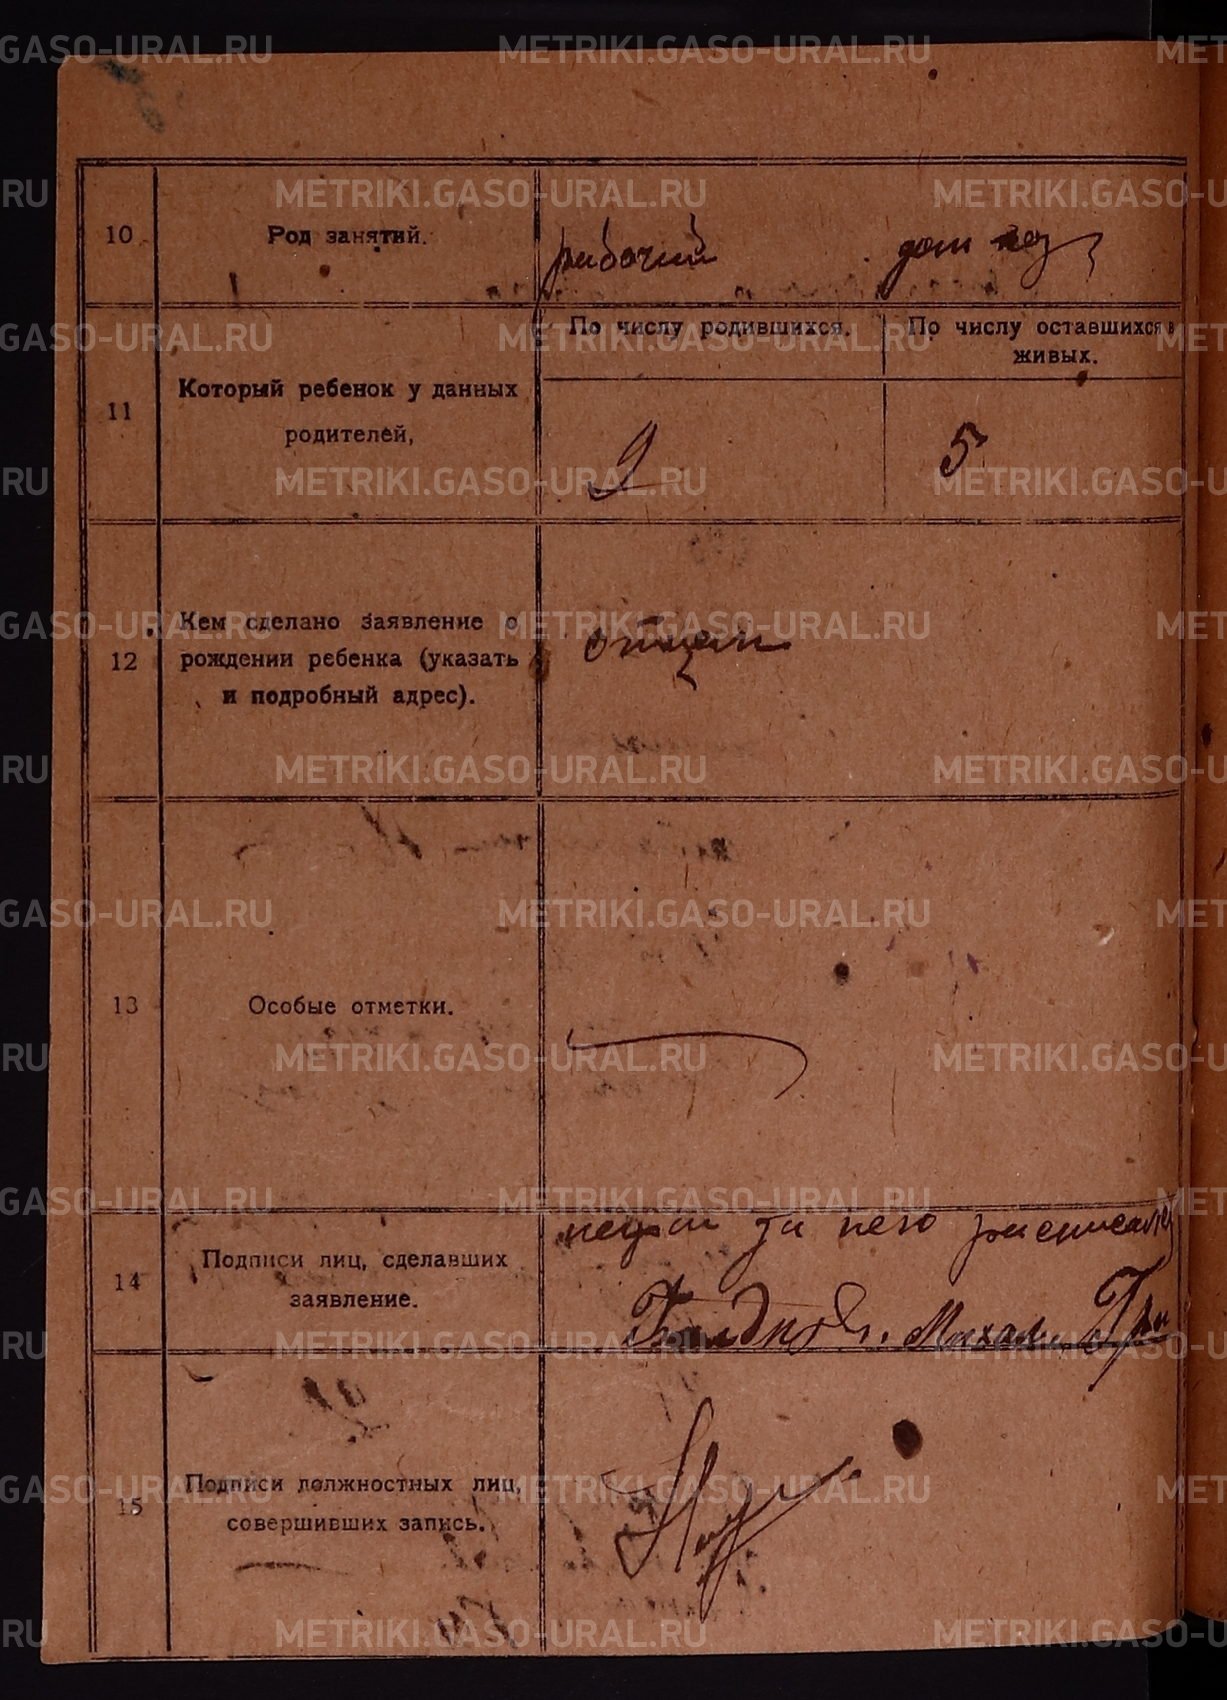 METRIKI.GASO-URAL.RU
10
Род занятий.
рабочий
дом хоз
11
Который ребенок у данных
родителей,
По числу родившихся.
По числу оставшихся в
живых.
9
5
12
Кем сделано заявление о
рождении ребенка (указать
и подробный адрес).
отцем
13
Особые отметки.
14
Подписи лиц, сделавших
заявление.
за него расписался
15
Подписи должностных лиц,
совершивших запись.